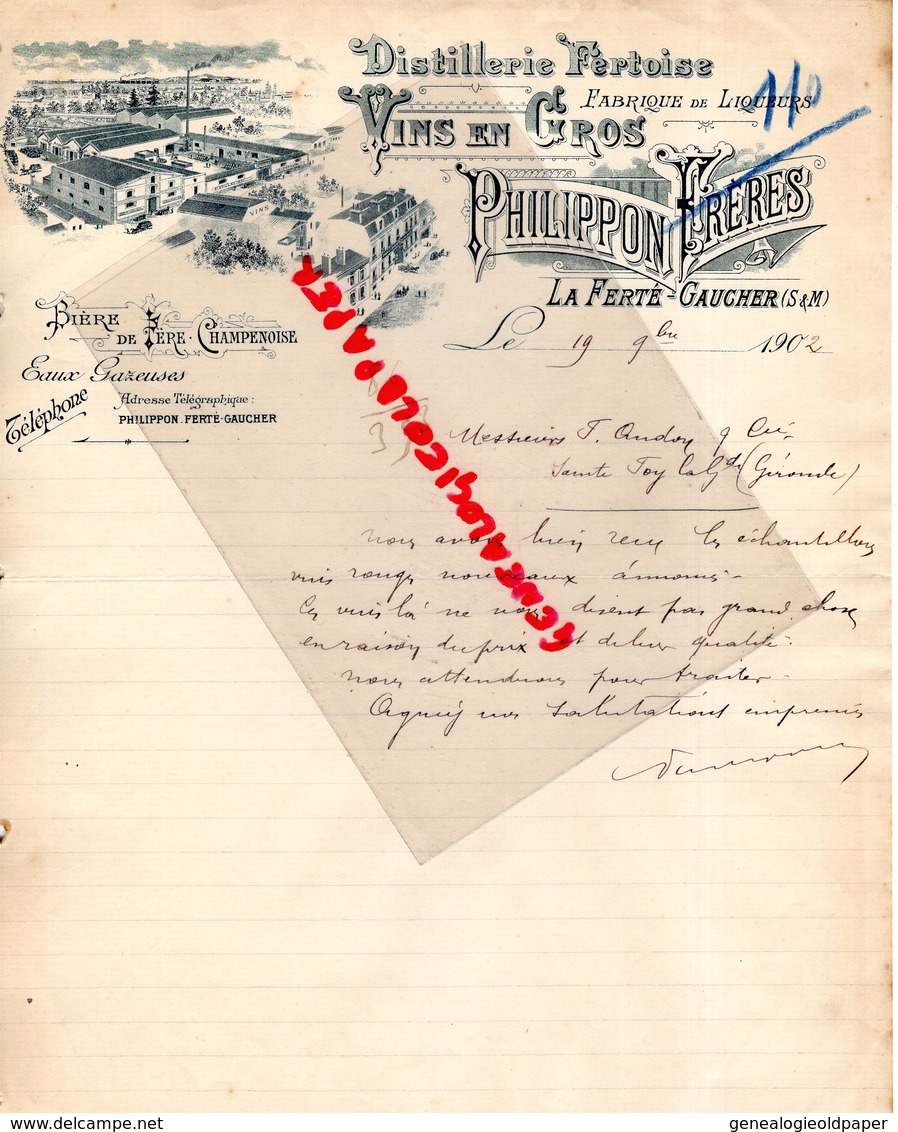 Distillerie Fertoise
Fabrique de Liqueurs
110
Vins en Gros
Philippon Frères
VINS
La Ferté-Gaucher (S&M)
Bière
de Fère-Champenoise
Eaux Gazeuses
Téléphone
Adresse Télégraphique:
PHILIPPON. FERTÉ-GAUCHER
Le 19 9bre 1902
Messieurs T. & Cie
Sainte Foy la Gde (Gironde)
nous avons bien reçu les échantillons
vins rouges nouveaux
Ces vins là ne nous disent pas grand chose
en raison du prix et de leur qualité.
nous attendrons pour traiter
Agréez nos salutations empressées
GENEALOGIEOLDPAPER
delcampe.net
genealogieoldpaper